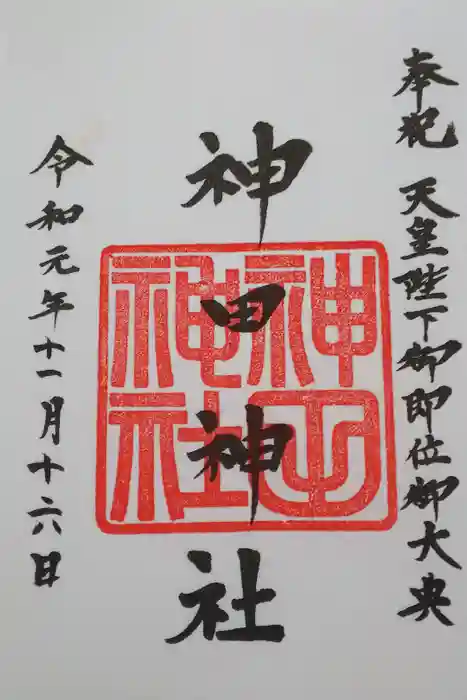 奉祝 天皇陛下御即位御大典
神田神社
令和元年十一月十六日